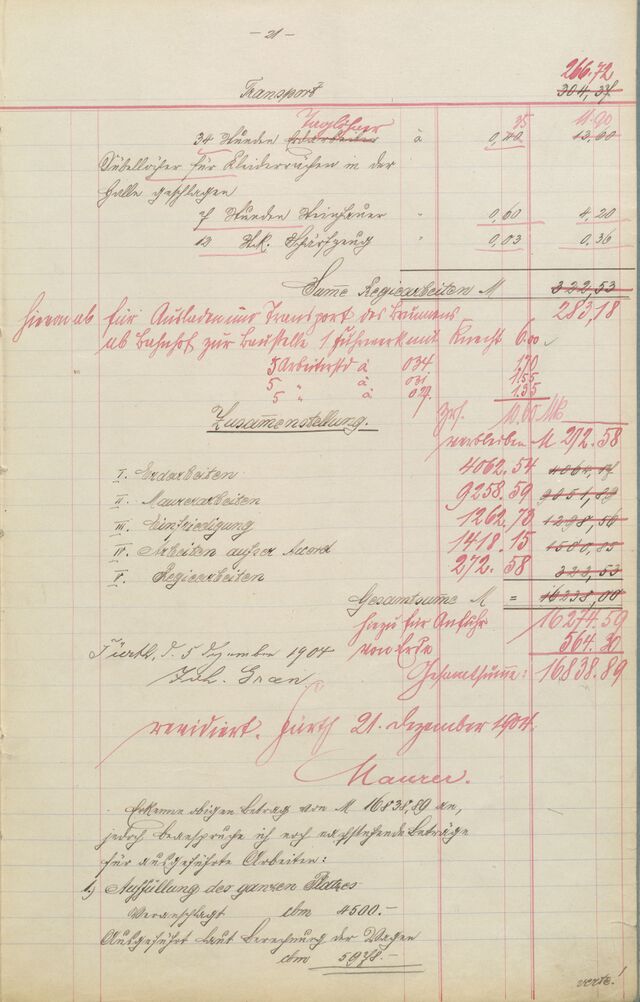 – 21 –
266.72
Transport 304,37
Taglöhner 35 11.90
34 Stunden à 0,40 13,60
Dübellöcher für Kleiderrächen in der
Halle geschlagen
7 Stunden Steinhauer " 0,60 4.20
12 Stck. Schärfzeug " 0,03 0,36
Sume Regiearbeiten M 322,53
283,18
Hievon ab für Ausladen und Transport des
ab Bahnhof zur Baustelle 1 Fuhrwerk mit Knecht 6.00
5 Arbeiterstd à 034 1.70
5 " à 031 1.55
5 " à 027 1.35
Zusamenstellung. 10.60 Mk
verbleiben M 272.58
I. Erdarbeiten 4062.54
II. Maurerarbeiten 9258.59 9051,89
III. Einfriedigung 1262.73 1298,56
IV. Arbeiten ausser Accord 1418.15 1500,85
V. Regiearbeiten 272.58 323,53
Gesamtsume M = 16238,00
hiezu für Anfuhr 16274.59
von Erde 564.30
Fürth, d. 5 Dezember 1904 Gesamtsumme: 16838.89
Joh. Gran
revidiert. Fürth 21. Dezember 1904.
Maurer.
Erkenne obigen Betrag von M 16838,89 an,
jedoch beanspruche ich noch nachstehende Beträge
für ausgeführte Arbeiten:
1.) Auffüllung des ganzen Platzes
Veranschlagt cbm 4500.–
Ausgeführt laut Berechnung der Wagen
cbm 5978.–
verte!